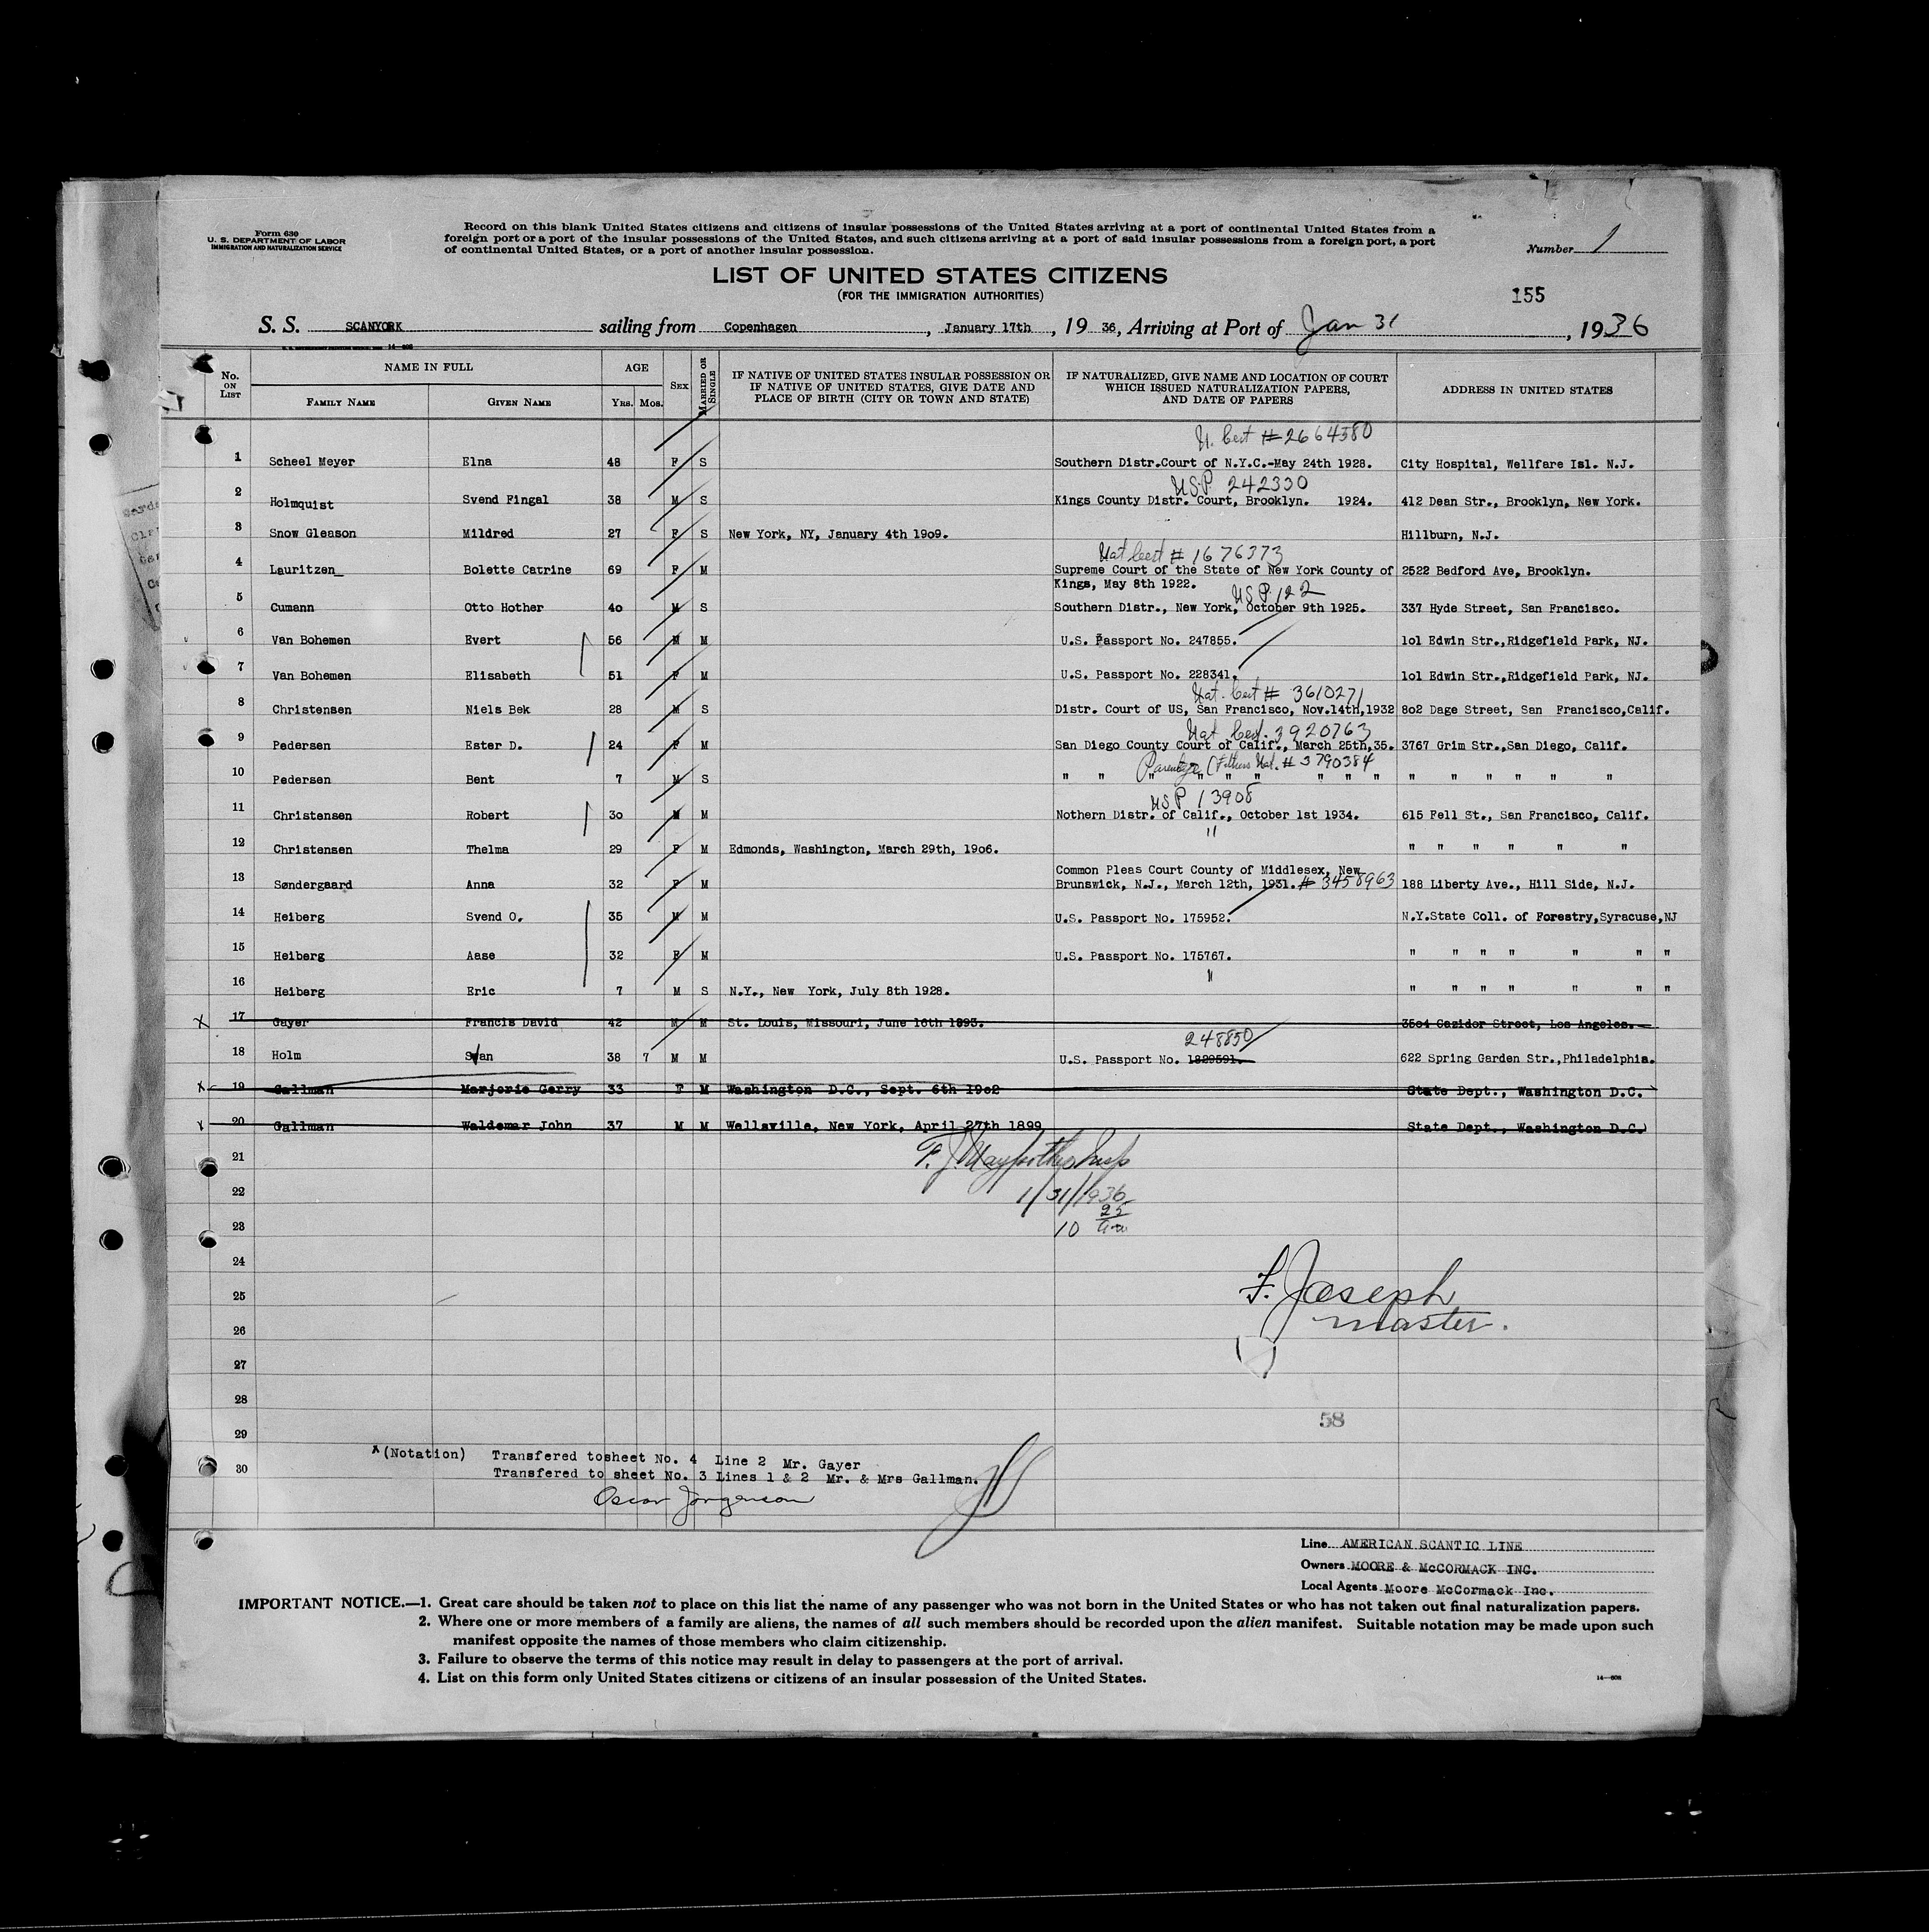 Form 630
U. S. DEPARTMENT OF LABOR
IMMIGRATION AND NATURALIZATION SERVICE
Record on this blank United States citizens and citizens of insular possessions of the United States arriving at a port of continental United States from a
foreign port or a port of the insular possessions of the United States, and such citizens arriving at a port of said insular possessions from a foreign port, a port
of continental United States, or a port of another insular possession.
Number 1
LIST OF UNITED STATES CITIZENS
(FOR THE IMMIGRATION AUTHORITIES)
155
S. S. SCANYORK sailing from Copenhagen, January 17th, 19 36, Arriving at Port of Jan 31, 1936
No. ON LIST
NAME IN FULL
FAMILY NAME
GIVEN NAME
AGE
YRS. MOS.
SEX
MARRIED OR SINGLE
IF NATIVE OF UNITED STATES INSULAR POSSESSION OR
IF NATIVE OF UNITED STATES, GIVE DATE AND
PLACE OF BIRTH (CITY OR TOWN AND STATE)
IF NATURALIZED, GIVE NAME AND LOCATION OF COURT
WHICH ISSUED NATURALIZATION PAPERS,
AND DATE OF PAPERS
ADDRESS IN UNITED STATES
N. Cert # 2664580
1 Scheel Meyer Elna 48 F S Southern Distr.Court of N.Y.C.-May 24th 1928. City Hospital, Wellfare Isl. N.J.
USP 242330
2 Holmquist Svend Fingal 38 M S Kings County Distr. Court, Brooklyn. 1924. 412 Dean Str., Brooklyn, New York.
3 Snow Gleason Mildred 27 F S New York, NY, January 4th 19o9. Hillburn, N.J.
Nat Cert # 1676373
4 Lauritzen_ Bolette Catrine 69 F M Supreme Court of the State of New York County of 2522 Bedford Ave, Brooklyn.
Kings, May 8th 1922.
USP. 122
5 Cumann Otto Hother 4o M S Southern Distr., New York, October 9th 1925. 337 Hyde Street, San Francisco.
6 Van Bohemen Evert 56 M M U.S. Passport No. 247855. 1o1 Edwin Str.,Ridgefield Park, NJ.
7 Van Bohemen Elisabeth 51 F M U.S. Passport No. 228341. 1o1 Edwin Str.,Ridgefield Park, NJ.
Nat. Cert # 3610271
8 Christensen Niels Bek 28 M S Distr. Court of US, San Francisco, Nov.14th,1932 8o2 Dage Street, San Francisco,Calif.
Nat Cert. 3920763
9 Pedersen Ester D. 24 F M San Diego County Court of Calif., March 25th,35. 3767 Grim Str.,San Diego, Calif.
Parentage (Fathers Nat. # 3790384
10 Pedersen Bent 7 M S " " " " " " " " " " " " " " "
USP 13908
11 Christensen Robert 3o M M Nothern Distr. of Calif., October 1st 1934. 615 Fell St., San Francisco, Calif.
"
12 Christensen Thelma 29 F M Edmonds, Washington, March 29th, 19o6. " " " " " "
Common Pleas Court County of Middlesex, New
13 Søndergaard Anna 32 F M Brunswick, N.J., March 12th, 1931. # 3458963 188 Liberty Ave., Hill Side, N.J.
14 Heiberg Svend O. 35 M M U.S. Passport No. 175952. N.Y.State Coll. of Forestry,Syracuse,NJ
15 Heiberg Aase 32 F M U.S. Passport No. 175767. " " " " " " "
"
16 Heiberg Eric 7 M S N.Y., New York, July 8th 1928. " " " " " " "
X 17 Gayer Francis David 42 M M St. Louis, Missouri, June 16th 1893. 35o4 Cazidor Street, Los Angeles.
248850
18 Holm 38 7 M M U.S. Passport No. 1829591. 622 Spring Garden Str.,Philadelphia.
X 19 Gallman Marjorie Gerry 33 F M Washington D.C., Sept. 6th 19o2 State Dept., Washington D.C.
X 20 Gallman Waldemar John 37 M M Wellsville, New York, April 27th 1899 State Dept., Washington D.C.
21
22
1/31/1936
25
23
10
24
F. Joseph
25
master.
26
27
28
58
29
X (Notation) Transfered tosheet No. 4 Line 2 Mr. Gayer
30
Transfered to sheet No. 3 Lines 1 & 2 Mr. & Mrs Gallman.
Oscar Jorgenson
Line AMERICAN SCANTIC LINE
Owners MOORE & McCORMACK INC.
Local Agents Moore McCormack Inc.
IMPORTANT NOTICE.—1. Great care should be taken not to place on this list the name of any passenger who was not born in the United States or who has not taken out final naturalization papers.
2. Where one or more members of a family are aliens, the names of all such members should be recorded upon the alien manifest. Suitable notation may be made upon such
manifest opposite the names of those members who claim citizenship.
3. Failure to observe the terms of this notice may result in delay to passengers at the port of arrival.
4. List on this form only United States citizens or citizens of an insular possession of the United States.